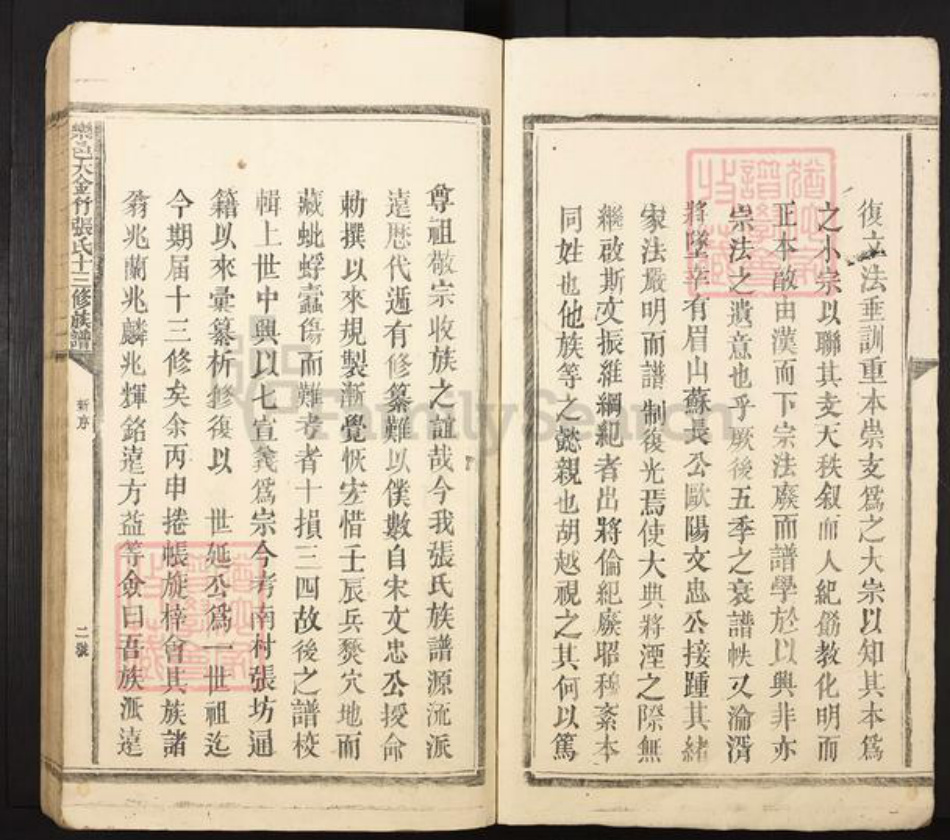 復立法垂訓重本崇支爲之大宗以知其本爲
之小宗以聯其支天秩叙而人紀飭教化明而
正本敵由漢而下宗法廢而譜學於以興非亦
崇法之遺意也乎厥後五季之衰譜帙又淪湑
將墜幸有眉山蘇長公歐陽文忠公接踵其緒
家法嚴明而譜制復光焉使大典將湮之際無
繼啟斯文振維綱紀者出將倫紀廢昭穆紊本
同姓也他族等之懿親也胡越視之其何以篤
尊祖敬宗收族之誼哉今我張氏族譜源流派
遠歴代遞有修纂難以僕數自宋文忠公授命
勅撰以來規製漸覺恢宏惜壬辰兵燹穴地而
藏蚍蜉蠹傷而難考者十損三四故後之譜校
輯上世中興以七宣義爲宗今考南村張坊通
籍以來彙纂析修復以 世延公爲一世祖迄
今期届十三修矣余丙申捲帳旋梓會其族諸
翁兆蘭兆麟兆輝銘遠方益等僉曰吾族派遠
樂邑大金竹張氏十三修族譜
新序
二號
FamilySearch